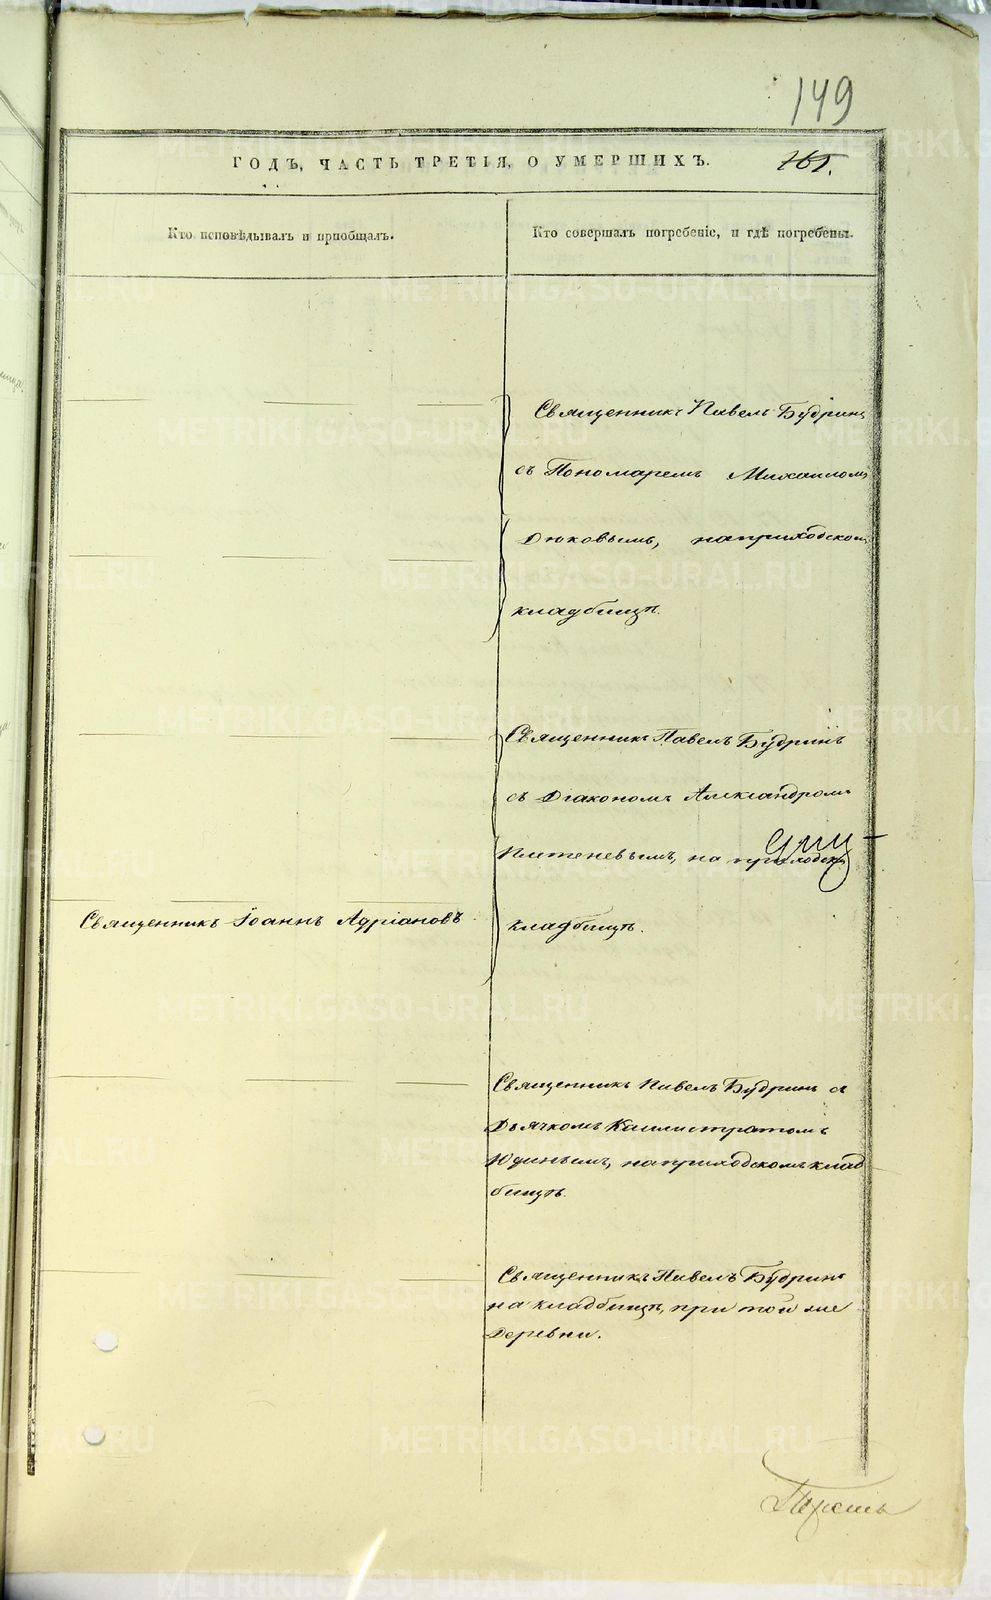 149
ГОДЪ, ЧАСТЬ ТРЕТІЯ, О УМЕРШИХЪ.
Кто исповѣдывалъ и пріобщалъ.
Кто совершалъ погребеніе, и гдѣ погребены.
Священникъ Павелъ Будринъ
съ Пономаремъ Михаиломъ
Дюковымъ, на приходскомъ
кладбищѣ.
Священникъ Павелъ Будринъ
съ Діакономъ Александромъ
на приходск
Священникъ Іоаннъ Адріановъ
кладбищѣ.
Священникъ Павелъ Будринъ съ
Дьячкомъ Каллистратомъ
Юдинымъ, на приходскомъ клад
бищѣ.
Священникъ Павелъ Будринъ
на кладбищѣ, при той же
деревни.
METRIKI.GASO-URAL.RU